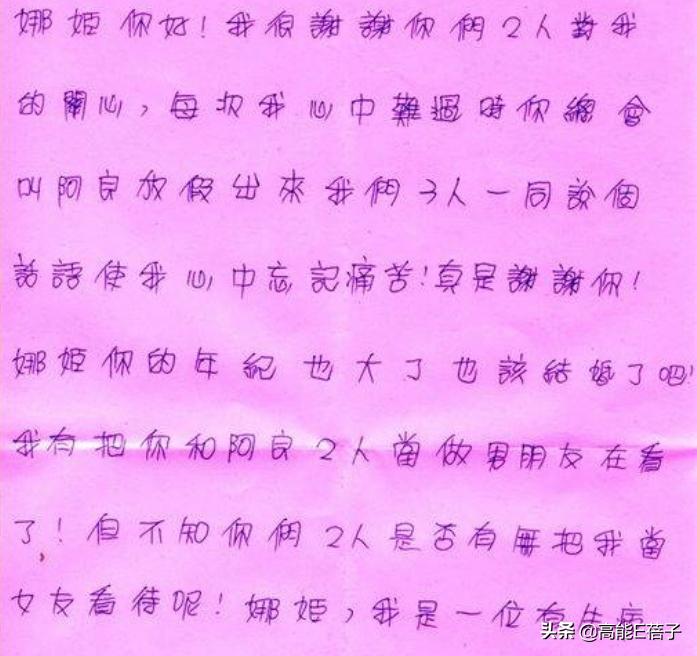 娜姬你好!我很謝謝你們2人對我
的關心,每次我心中難過時你總會
叫阿良放假出來我們3人一同說個
話語使我心中忘記痛苦!真是謝謝你!
娜姬你的年紀也大了也該結婚了吧!
我有把你和阿良2人當做男朋友在看
了!但不知你們2人是否有無把我當
女友看待呢!娜姬,我是一位有生病
头条 @高能E蓓子